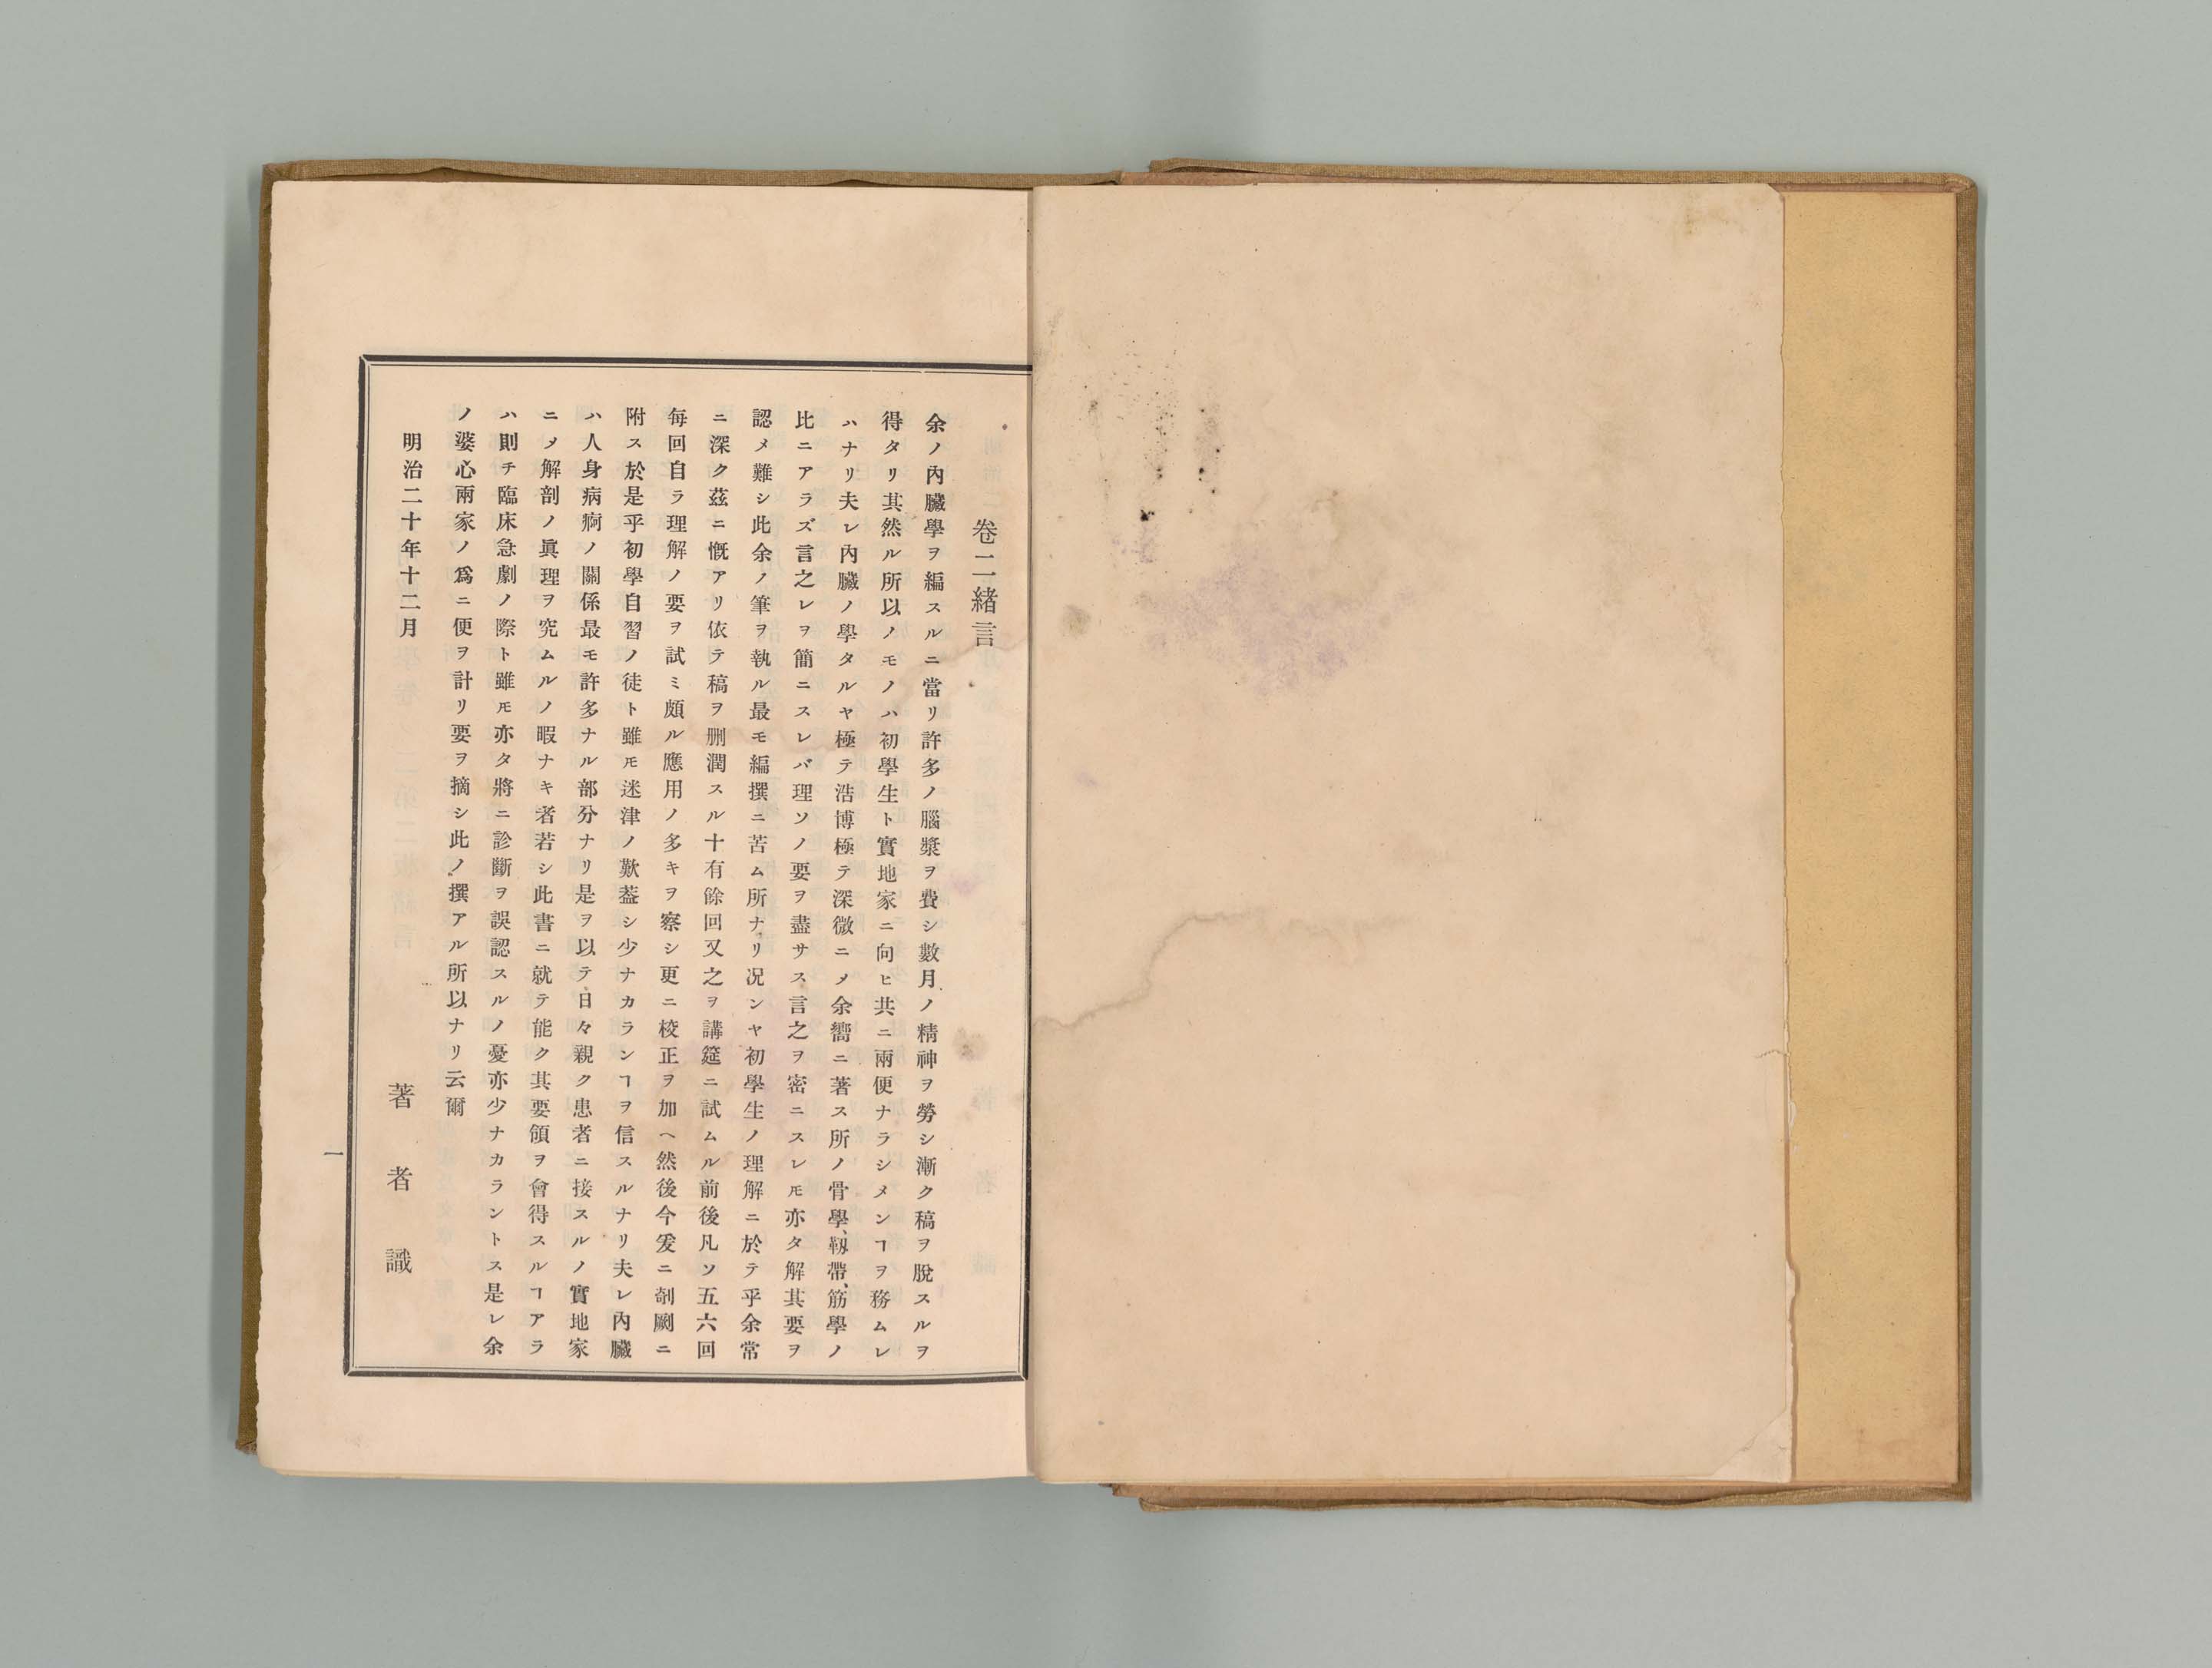 卷二緒言
余ノ內臟學ヲ編スルニ當リ許多ノ腦漿ヲ費シ數月ノ精神ヲ勞シ漸ク稿ヲ脫スルヲ
得タリ其然ル所以ノモノハ初學生ト實地家ニ向ヒ共ニ兩便ナラシメンヿヲ務ムレ
ハナリ夫レ內臟ノ學タルヤ極テ浩博極テ深微ニメ余嚮ニ著ス所ノ骨學、靱帶、筋學ノ
比ニアラズ言之レヲ簡ニスレバ理ソノ要ヲ盡サス言之ヲ密ニスレ𪜈亦タ解其要ヲ
認メ難シ此余ノ筆ヲ執ル最モ編撰ニ苦ム所ナリ况ンヤ初學生ノ理解ニ於テ乎余常
ニ深ク茲ニ慨アリ依テ稿ヲ刪潤スル十有餘回又之ヲ講筵ニ試ムル前後凡ソ五六回
每回自ラ理解ノ要ヲ試ミ頗ル應用ノ多キヲ察シ更ニ校正ヲ加ヘ然後今爰ニ剞劂ニ
附ス於是乎初學自習ノ徒ト雖𪜈迷津ノ歎葢シ少ナカランヿヲ信スルナリ夫レ內臟
ハ人身病痾ノ關係最モ許多ナル部分ナリ是ヲ以テ日々親ク患者ニ接スルノ實地家
ニメ解剖ノ眞理ヲ究ムルノ暇ナキ者若シ此書ニ就テ能ク其要領ヲ會得スルヿアラ
ハ則チ臨床急劇ノ際ト雖𪜈亦タ將ニ診斷ヲ誤認スルノ憂亦少ナカラントス是レ余
ノ婆心兩家ノ爲ニ便ヲ計リ要ヲ摘シ此ノ撰アル所以ナリ云爾
明治二十年十二月
著者識
一